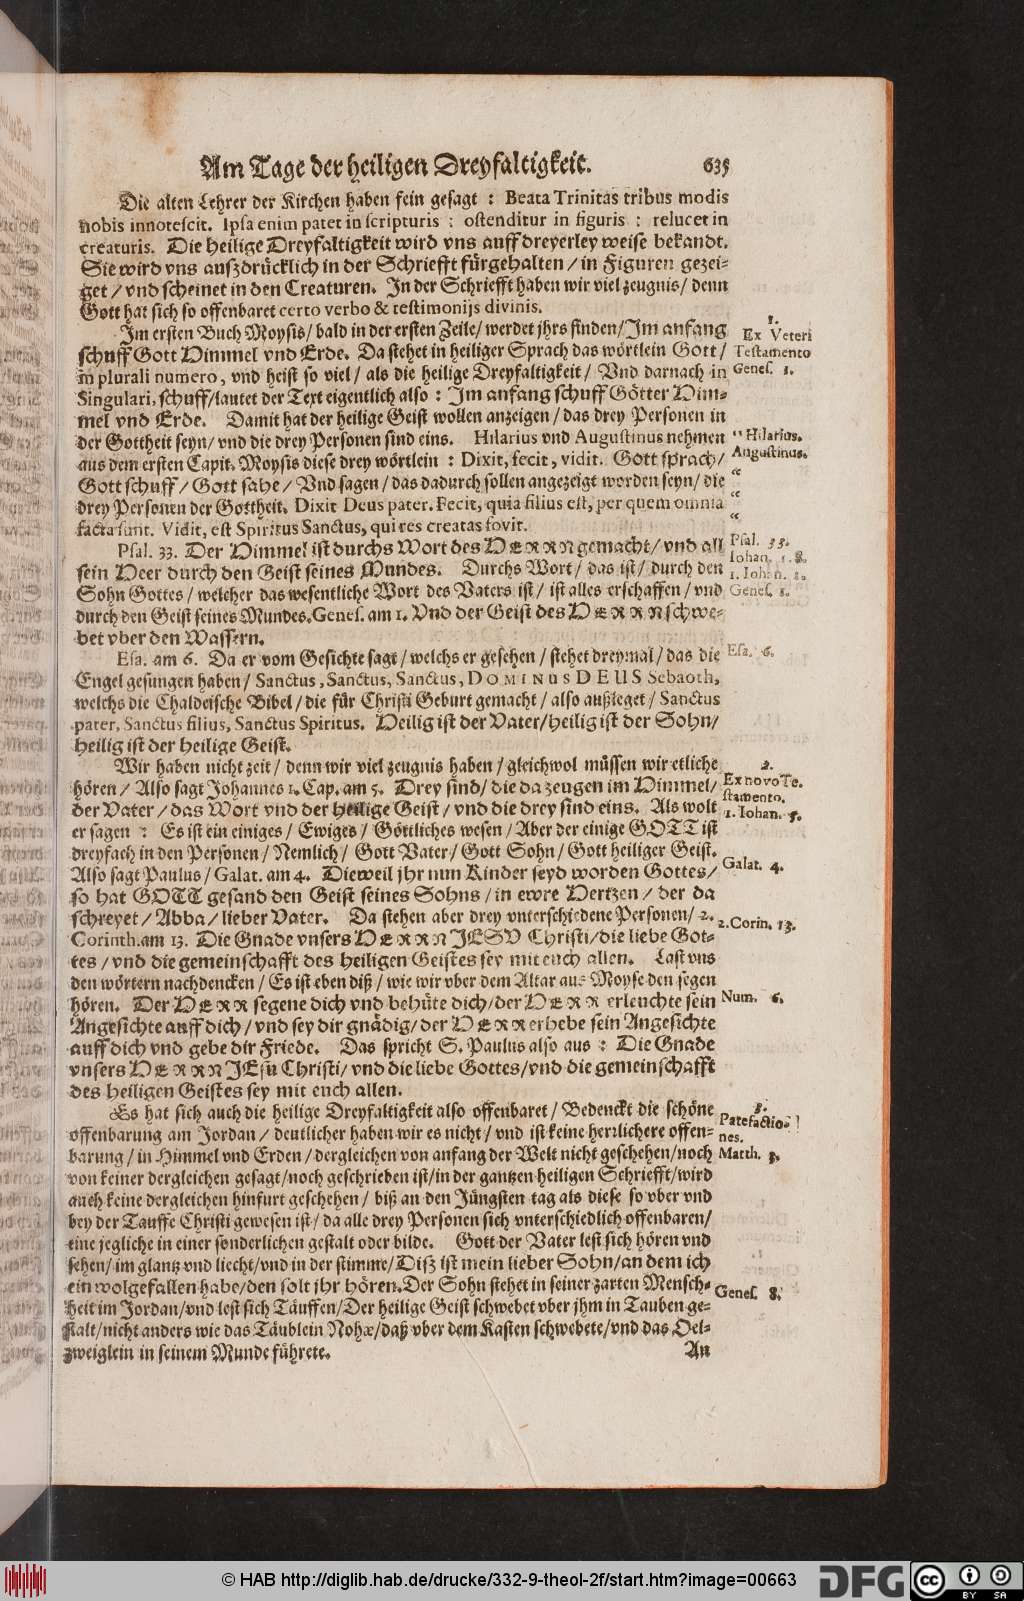 Am Tage der heiligen Dreyfaltigkeit. 635
Die alten Lehrer der Kirchen haben fein gesagt : Beata Trinitas tribus modis
nobis innotescit. Ipsa enim patet in scripturis : ostenditur in figuris : relucet in
creaturis. Die heilige Dreyfaltigkeit wird vns auff dreyerley weise bekandt.
Sie wird vns auszdrücklich in der Schriefft fürgehalten / in Figuren gezei-
get / vnd scheinet in den Creaturen. In der Schriefft haben wir viel zeugnis / denn
Gott hat sich so offenbaret certo verbo & testimonijs divinis.
Im ersten Buch Moysis / bald in der ersten Zeile / werdet jhrs finden / Im anfang
schuff Gott Himmel vnd Erde. Da stehet in heiliger Sprach das wörtlein Gott /
in plurali numero, vnd heist so viel / als die heilige Dreyfaltigkeit / Vnd darnach in
Singulari, schuff / lautet der Text eigentlich also : Im anfang schuff Götter Him-
mel vnd Erde. Damit hat der heilige Geist wollen anzeigen / das drey Personen in
der Gottheit seyn / vnd die drey Personen sind eins. Hilarius vnd Augustinus nehmen
aus dem ersten Capit. Moysis diese drey wörtlein : Dixit, fecit, vidit. Gott sprach /
Gott schuff / Gott sahe / Vnd sagen / das dadurch sollen angezeigt worden seyn / die
drey Personen der Gottheit. Dixit Deus pater. Fecit, quia filius est, per quem omnia
facta sunt. Vidit, est Spiritus Sanctus, qui res creatas fovit.
Psal. 33. Der Himmel ist durchs Wort des HERRN gemacht / vnd all
sein Heer durch den Geist seines Mundes. Durchs Wort / das ist / durch den
Sohn Gottes / welcher das wesentliche Wort des Vaters ist / ist alles erschaffen / vnd
durch den Geist seines Mundes. Genes. am 1. Vnd der Geist des HERRN schwe-
bet vber den Wassern.
Esa. am 6. Da er vom Gesichte sagt / welchs er gesehen / stehet dreymal / das die
Engel gesungen haben / Sanctus, Sanctus, Sanctus, DOMINUS DEUS Sebaoth,
welchs die Chaldeische Bibel / die für Christi Geburt gemacht / also außleget / Sanctus
pater, Sanctus filius, Sanctus Spiritus. Heilig ist der Vater / heilig ist der Sohn /
heilig ist der heilige Geist.
Wir haben nicht zeit / denn wir viel zeugnis haben / gleichwol müssen wir etliche
hören / Also sagt Johannes 1. Cap. am 5. Drey sind / die da zeugen im Himmel /
der Vater / das Wort vnd der heilige Geist / vnd die drey sind eins. Als wolt
er sagen : Es ist ein einiges / Ewiges / Göttliches wesen / Aber der einige GOTT ist
dreyfach in den Personen / Nemlich / Gott Vater / Gott Sohn / Gott heiliger Geist.
Also sagt Paulus / Galat. am 4. Dieweil jhr nun Kinder seyd worden Gottes /
so hat GOTT gesand den Geist seines Sohns / in ewre Hertzen / der da
schreyet / Abba / lieber Vater. Da stehen aber drey vnterschiedene Personen / 2.
Corinth. am 13. Die Gnade vnsers HERRN JESU Christi / die liebe Got-
tes / vnd die gemeinschafft des heiligen Geistes sey mit euch allen. Last vns
den wörtern nachdencken / Es ist eben diß / wie wir vber dem Altar aus Moyse den segen
hören. Der HERR segene dich vnd behüte dich / der HERR erleuchte sein
Angesichte auff dich / vnd sey dir gnädig / der HERR erhebe sein Angesichte
auff dich vnd gebe dir Friede. Das spricht S. Paulus also aus : Die Gnade
vnsers HERRN JEsu Christi / vnd die liebe Gottes / vnd die gemeinschafft
des heiligen Geistes sey mit euch allen.
Es hat sich auch die heilige Dreyfaltigkeit also offenbaret / Bedenckt die schöne
offenbarung am Jordan / deutlicher haben wir es nicht / vnd ist keine herrlichere offen-
barung / in Himmel vnd Erden / dergleichen von anfang der Welt nicht geschehen / noch
von keiner dergleichen gesagt / noch geschrieben ist / in der gantzen heiligen Schriefft / wird
auch keine dergleichen hinfurt geschehen / biß an den Jüngsten tag als diese so vber vnd
bey der Tauffe Christi gewesen ist / da alle drey Personen sich vnterschiedlich offenbaren /
eine jegliche in einer sonderlichen gestalt oder bilde. Gott der Vater lest sich hören vnd
sehen / im glantz vnd liecht / vnd in der stimme / Disz ist mein lieber Sohn / an dem ich
ein wolgefallen habe / den solt jhr hören. Der Sohn stehet in seiner zarten Mensch-
heit im Jordan / vnd lest sich Täuffen / Der heilige Geist schwebet vber jhm in Tauben ge-
stalt / nicht anders wie das Täublein Nohæ / daß vber dem Kasten schwebete / vnd das Oel-
zweiglein in seinem Munde führete.
An
1.
Ex Veteri
Testamento
Genes. 1.
" Hilarius.
Augustinus.
“
“
“
Psal. 33.
Iohan. 1. 8.
1. Iohan. 1.
Genes. 1.
Esa. 6.
2.
Ex novo Te-
stamento.
1. Iohan. 5.
Galat. 4.
2. Corin. 13.
Num. 6.
3.
Patefactio-
nes.
Matth. 3.
Genes. 8.
© HAB http://diglib.hab.de/drucke/332-9-theol-2f/start.htm?image=00663
DFG
cc BY SA